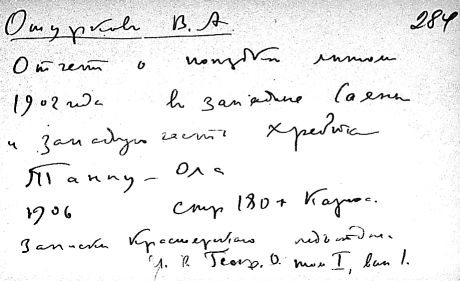 Ошурков В. А 284
Отчет о поездке летом
1902 года в западные Саяны
и западную часть хребта
Танну-Ола
1906 стр 180 + Карта.
Записки Красноярского подъотдела
И. Р. Геогр. О. том I, вып 1.